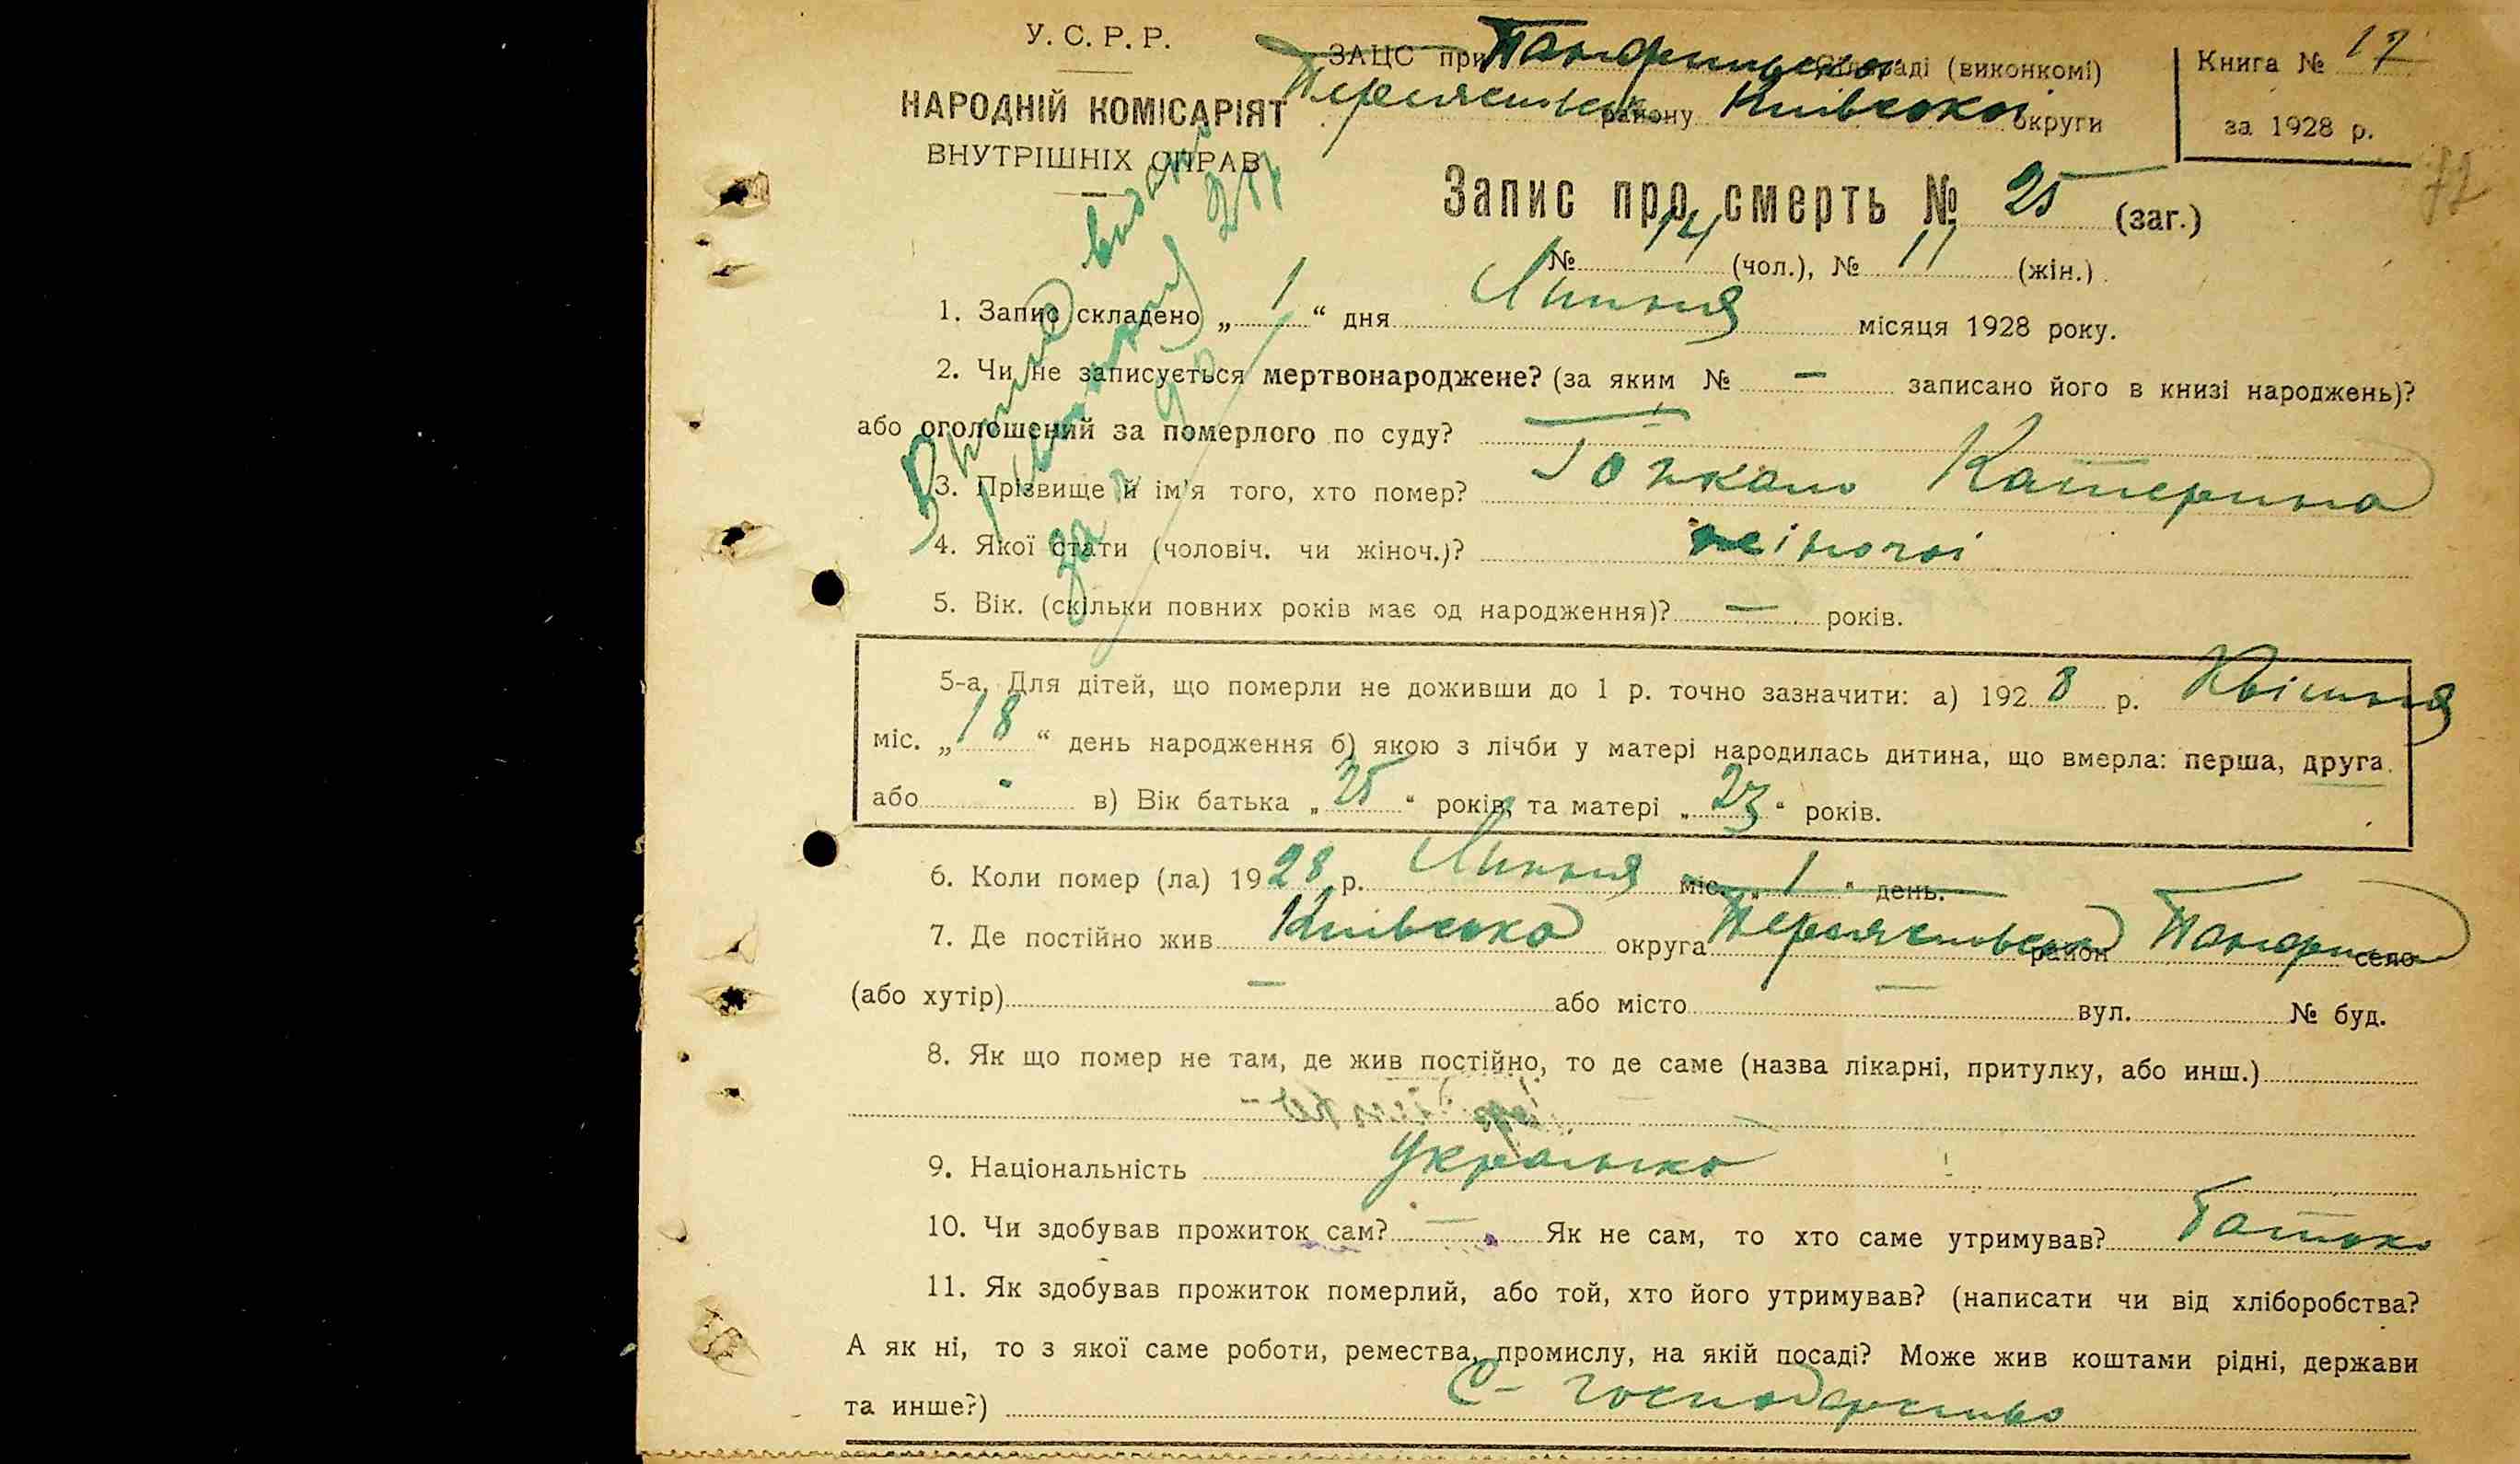 У. С. Р. Р.
НАРОДНІЙ КОМІСАРІЯТ
ВНУТРІШНІХ СПРАВ
ЗАЦС при Панфильській Сільраді (виконкомі)
Переяславськ району Київської округи
Книга № 17
за 1928 р.
72
Запис про смерть № 25 (заг.)
№ 14 (чол.), № 11 (жін.)
1. Запис складено „ 1 “ дня Липня місяця 1928 року.
2. Чи не записується мертвонароджене? (за яким № — записано його в книзі народжень)?
або оголошений за померлого по суду? —
3. Прізвище й ім'я того, хто помер? Катерина
4. Якої стати (чоловіч. чи жіноч.)? жіночої
5. Вік. (скільки повних років має од народження)? — років.
5-а. Для дітей, що померли не доживши до 1 р. точно зазначити: а) 1928 р. Квітня
міс. „ 18 “ день народження б) якою з лічби у матері народилась дитина, що вмерла: перша, друга.
або - в) Вік батька „ 25 “ років, та матері „ 23 “ років.
6. Коли помер (ла) 1928 р. Липня міс. „ 1 “ день.
7. Де постійно жив Київська округа Переяславськ район Панфили село
(або хутір) — або місто — вул. № буд.
8. Як що помер не там, де жив постійно, то де саме (назва лікарні, притулку, або инш.)
9. Національність Українка
10. Чи здобував прожиток сам? — Як не сам, то хто саме утримував? Батько
11. Як здобував прожиток померлий, або той, хто його утримував? (написати чи від хліборобства?
А як ні, то з якої саме роботи, ремества, промислу, на якій посаді? Може жив коштами рідні, держави
та инше?) С- господарство